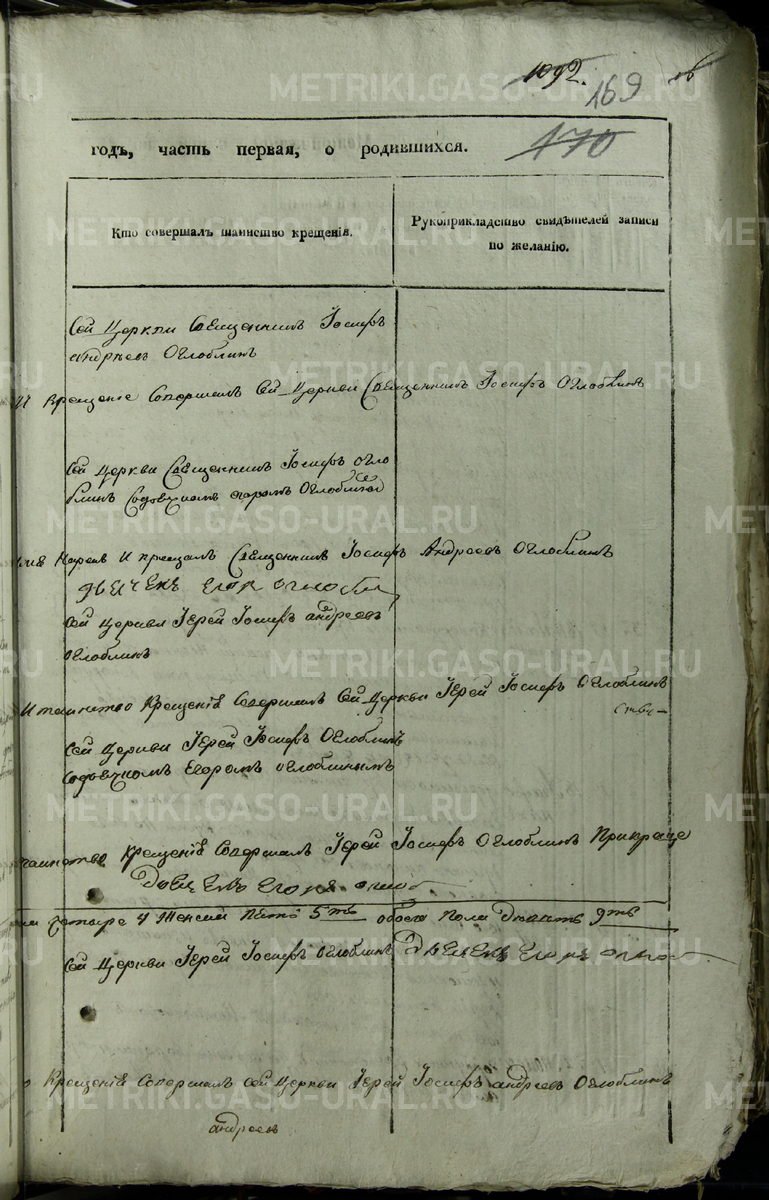 1092.
169
об
170
годъ, часть первая, о родившихся.
Кто совершалъ таинство крещенія.
Рукоприкладство свидѣтелей записи по желанію.
Сей Церкви Священникъ Іосифъ
андреевъ Оглоблинъ
И крещение совершалъ Сей Церкви Священникъ Іосифъ Оглоблинъ
Сей Церкви Священникъ Іосифъ Огло
блинъ
Нарекъ И крещалъ Священникъ Іосифъ Андреевъ Оглоблинъ
Сей Церкви Іерей Іосифъ андреевъ
оглоблинъ
И таинство Крещенія Совершалъ Сей Церкви Іерей Іосифъ Оглоблинъ
Сей Церкви Іерей Іосифъ Оглоблинъ
Егоромъ оглоблинымъ
таинство Крещенія Совершалъ Іерей Іосифъ Оглоблинъ При
четыре И женска Пять 5ть обоего Пола Девять 9ть
Сей Церкви Іерей Іосифъ оглоблинъ
Крещенія Совершалъ Сей Церкви Іерей Іосифъ андреевъ Оглоблинъ
андреевъ
METRIKI.GASO-URAL.RU